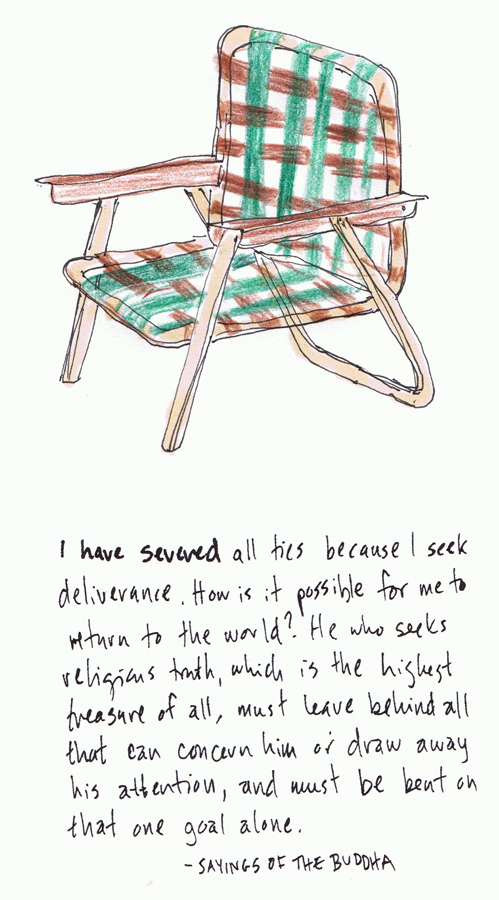 I have severed all ties because I seek
deliverance. How is it possible for me to
return to the world? He who seeks
religious truth, which is the highest
treasure of all, must leave behind all
that can concern him or draw away
his attention, and must be bent on
that one goal alone.
- SAYINGS OF THE BUDDHA